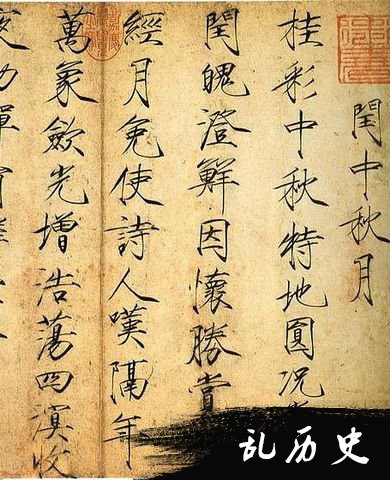 閏中秋月
桂彩中秋特地圓況
閏魄澄鮮因懷勝賞
經月免使詩人嘆隔年
萬象歛光增浩蕩四溟收
乱历史